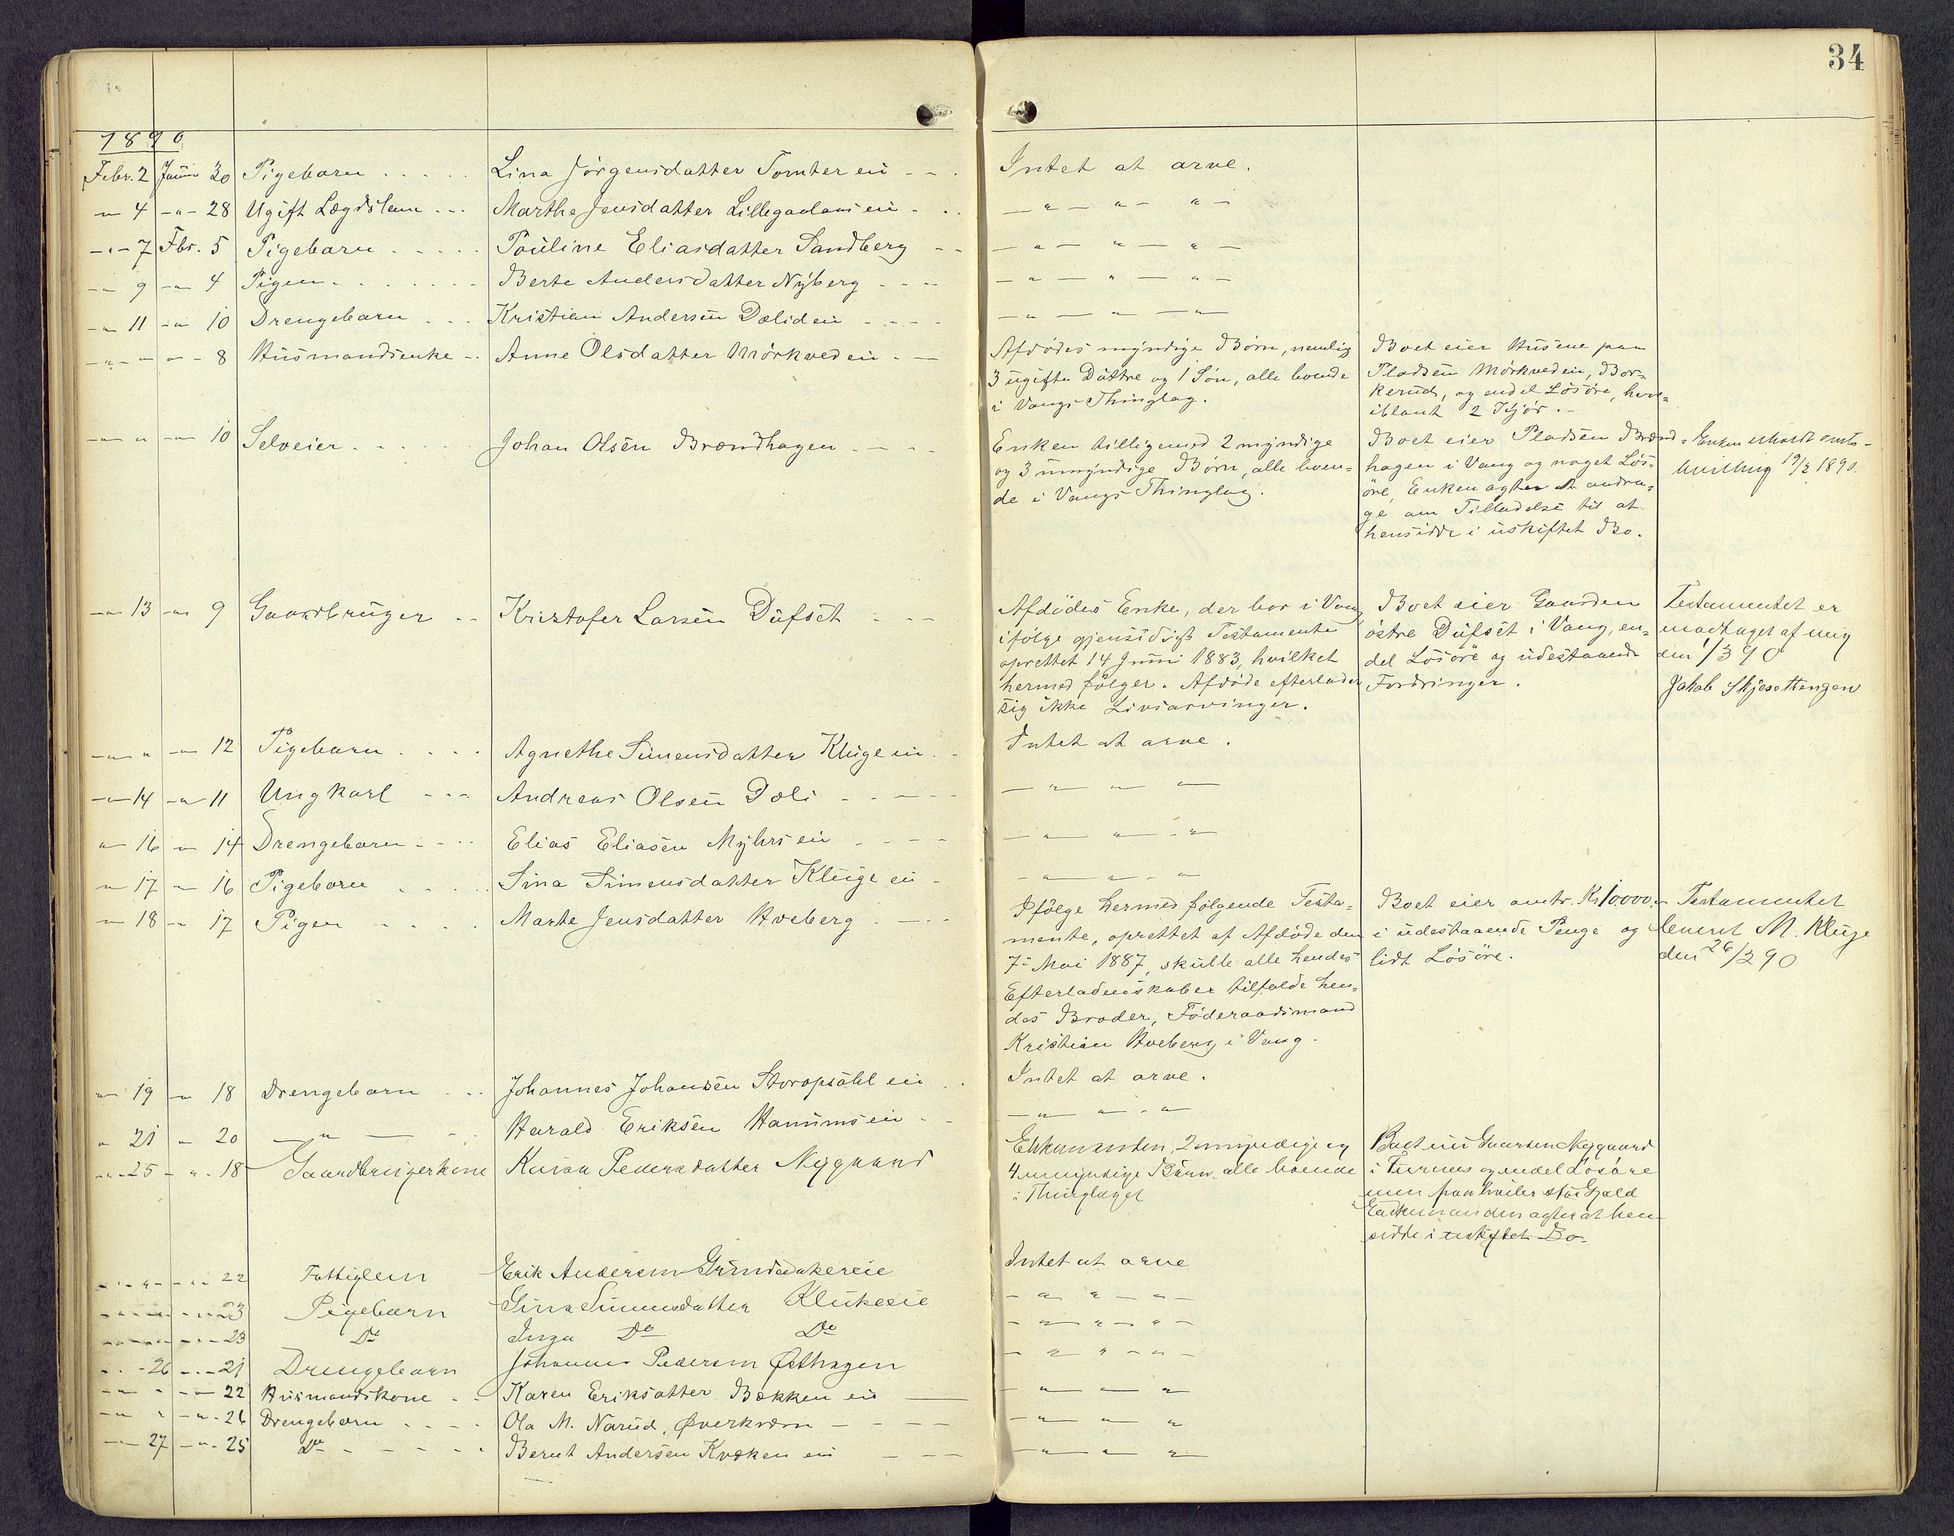 34
1890
Febr. 2 Januar 30 Pigebarn Lina Jörgensdatter Tomter ei Intet at arve.
-"- 4 -"- 28 Ugift Lægdslem Marthe Jensdatter Lillegaardsei -"- "- "-
-"- 7 Fbr. 5 Pigebarn Pouline Eliasdatter Sandberg -"- "- "-
-"- 9 -"- 4 Pigen Berte Andersdatter Nyberg -"- "- "-
-"- 11 -"- 10 Drengebarn Kristian Andersen Dæliei -"- "- "-
-"- " -"- 8 Husmandsenke Anne Olsdatter Mörkvedei
Afdödes myndige Börn, nemlig
3 ugifte Döttre og 1 Sön, alle boende
i Vangs Thinglag.
Boet eier Husene paa
Pladsen Mörkveden, Bor-
kerud, og endel Lösöre, hvor-
iblant 2 Kjör.
-"- " -"- 10 Selveier Johan Olsen Brændhagen
Enken tilligemed 2 myndige
og 3 umyndige Börn, alle boen-
de i Vangs Thinglag.
Boet eier Pladsen Brænd-
hagen i Vang og noget Lös-
öre, Enken agter at andra-
ge om Tilladelse til at
hensidde i uskiftet Bo.
Enken erholdt amts-
bevilling 19/3 1890.
-"- 13 -"- 9 Gaardbruger Kristofer Larsen Dufset
Afdödes Enke, der bor i Vang,
ifölge gjensidigt Testamente
oprettet 14 Juni 1883, hvilket
hermed fölger. Afdöde efterlader
sig ikke Livsarvinger.
Boet eier Gaarden
östre Dufset i Vang, en-
del Lösöre og udestaaende
Fordringer.
Testamentet er
modtaget af mig
den 1/3 90
Jakob Skjesettengen
-"- " -"- 12 Pigebarn Agnethe Simensdatter Klugeei Intet at arve.
-"- 14 -"- 11 Ungkarl Andreas Olsen Dæli -"- "- "-
-"- 16 -"- 14 Drengebarn Elias Eliasen Myhrsei -"- "- "-
-"- 17 -"- 16 Pigebarn Sina Simensdatter Klugeei -"- "- "-
-"- 18 -"- 17 Pigen Marte Jensdatter Hveberg
Ifölge hermed fölgende Testa-
mente, oprettet af Afdöde den
7de Mai 1887, skulle alle hendes
Efterladenskaber tilfalde hen-
des Broder, Föderaadsmand
Kristian Hveberg i Vang.
Boet eier omtr. Kr 10.000.-
i udestaaende Penge og
lidt Lösöre.
Testamentet
leveret M. Kluge
den 26/3 90
-"- 19 -"- 18 Drengebarn Johannes Johansen Storopsahl ei Intet at arve.
" 21 " 20 -"- Harald Eriksen Hanumsei -"- "- "-
-"- 25 -"- 18 Gaardbrugerkone Karen Pedersdatter Nygaard
Enkemanden, 2 myndige og
4 umyndige Börn, alle boende
i Thinglaget
Boet eier Gaarden Nygaard
i Furnes og endel Lösöre
men paahviler stor Gjæld
Enkemanden agter at hen-
sidde i uskiftet Bo.
-"- " -"- 22 Fattiglem Erik Andersen Grindakereie Intet at arve
-"- " -"- 23 Pigebarn Gina Simensdatter Klukeeie -"- "- "-
-"- " -"- 23 Do Inga Do Do -"- "- "-
-"- 26 -"- 21 Drengebarn Johannes Pedersen Østhagen -"- "- "-
-"- " -"- 22 Husmandskone Karen Eriksdatter Bækken ei -"- "- "-
-"- " -"- 26 Drengebarn Ola M. Narud, Øverkvern -"- "- "-
-"- 27 -"- 25 Do Bernt Andersen Kvæken ei -"- "- "-